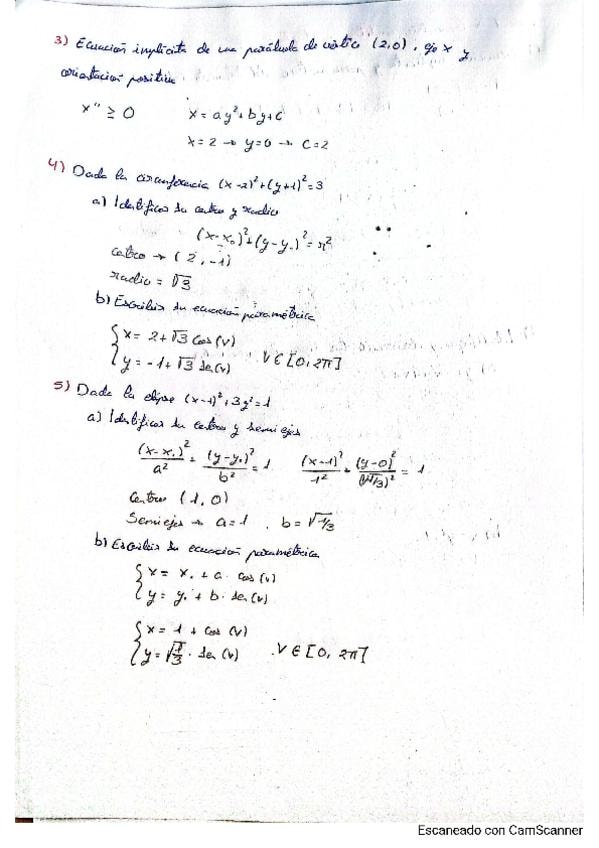 3) Ecuación implícita de una parábola de vértice (2,0), eje x y
orientación positiva
x'' ≥ 0 x = ay² + by + c
x = 2 → y = 0 → c = 2
4) Dada la circunferencia (x-2)² + (y+1)² = 3
a) Identificar su centro y radio
(x-x₀)² + (y-y₀)² = r²
centro → (2, -1)
radio = √3
b) Escribir su ecuación paramétrica
x = 2 + √3 cos(v)
y = -1 + √3 sen(v) v ∈ [0, 2π]
5) Dada la elipse (x-1)² + 3y² = 1
a) Identificar su centro y semiejes
(x-x₀)²/a² + (y-y₀)²/b² = 1 (x-1)²/1² + (y-0)²/(√1/3)² = 1
Centro (1, 0)
Semiejes → a = 1, b = √1/3
b) Escribir su ecuación paramétrica
x = x₀ + a · cos(v)
y = y₀ + b · sen(v)
x = 1 + cos(v)
y = √1/3 · sen(v) v ∈ [0, 2π]
Escaneado con CamScanner